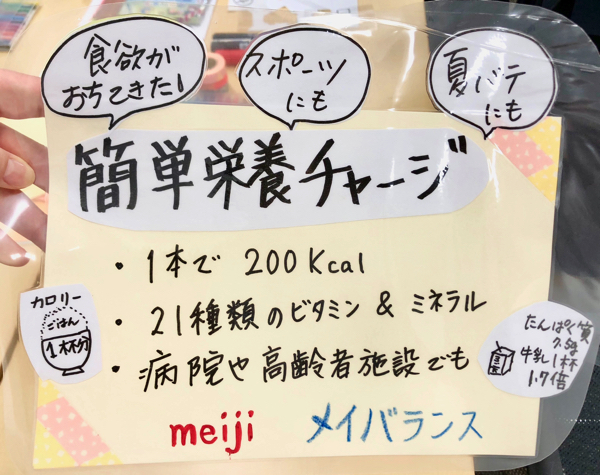 食欲が
おちてきた!
スポーツ
にも
夏バテ
にも
簡単栄養チャージ
・1本で 200Kcal
・21種類のビタミン & ミネラル
・病院や高齢者施設でも
カロリー
ごはん
1杯分
たんぱく質
7.5g
牛乳1杯
1.7倍
meiji メイバランス